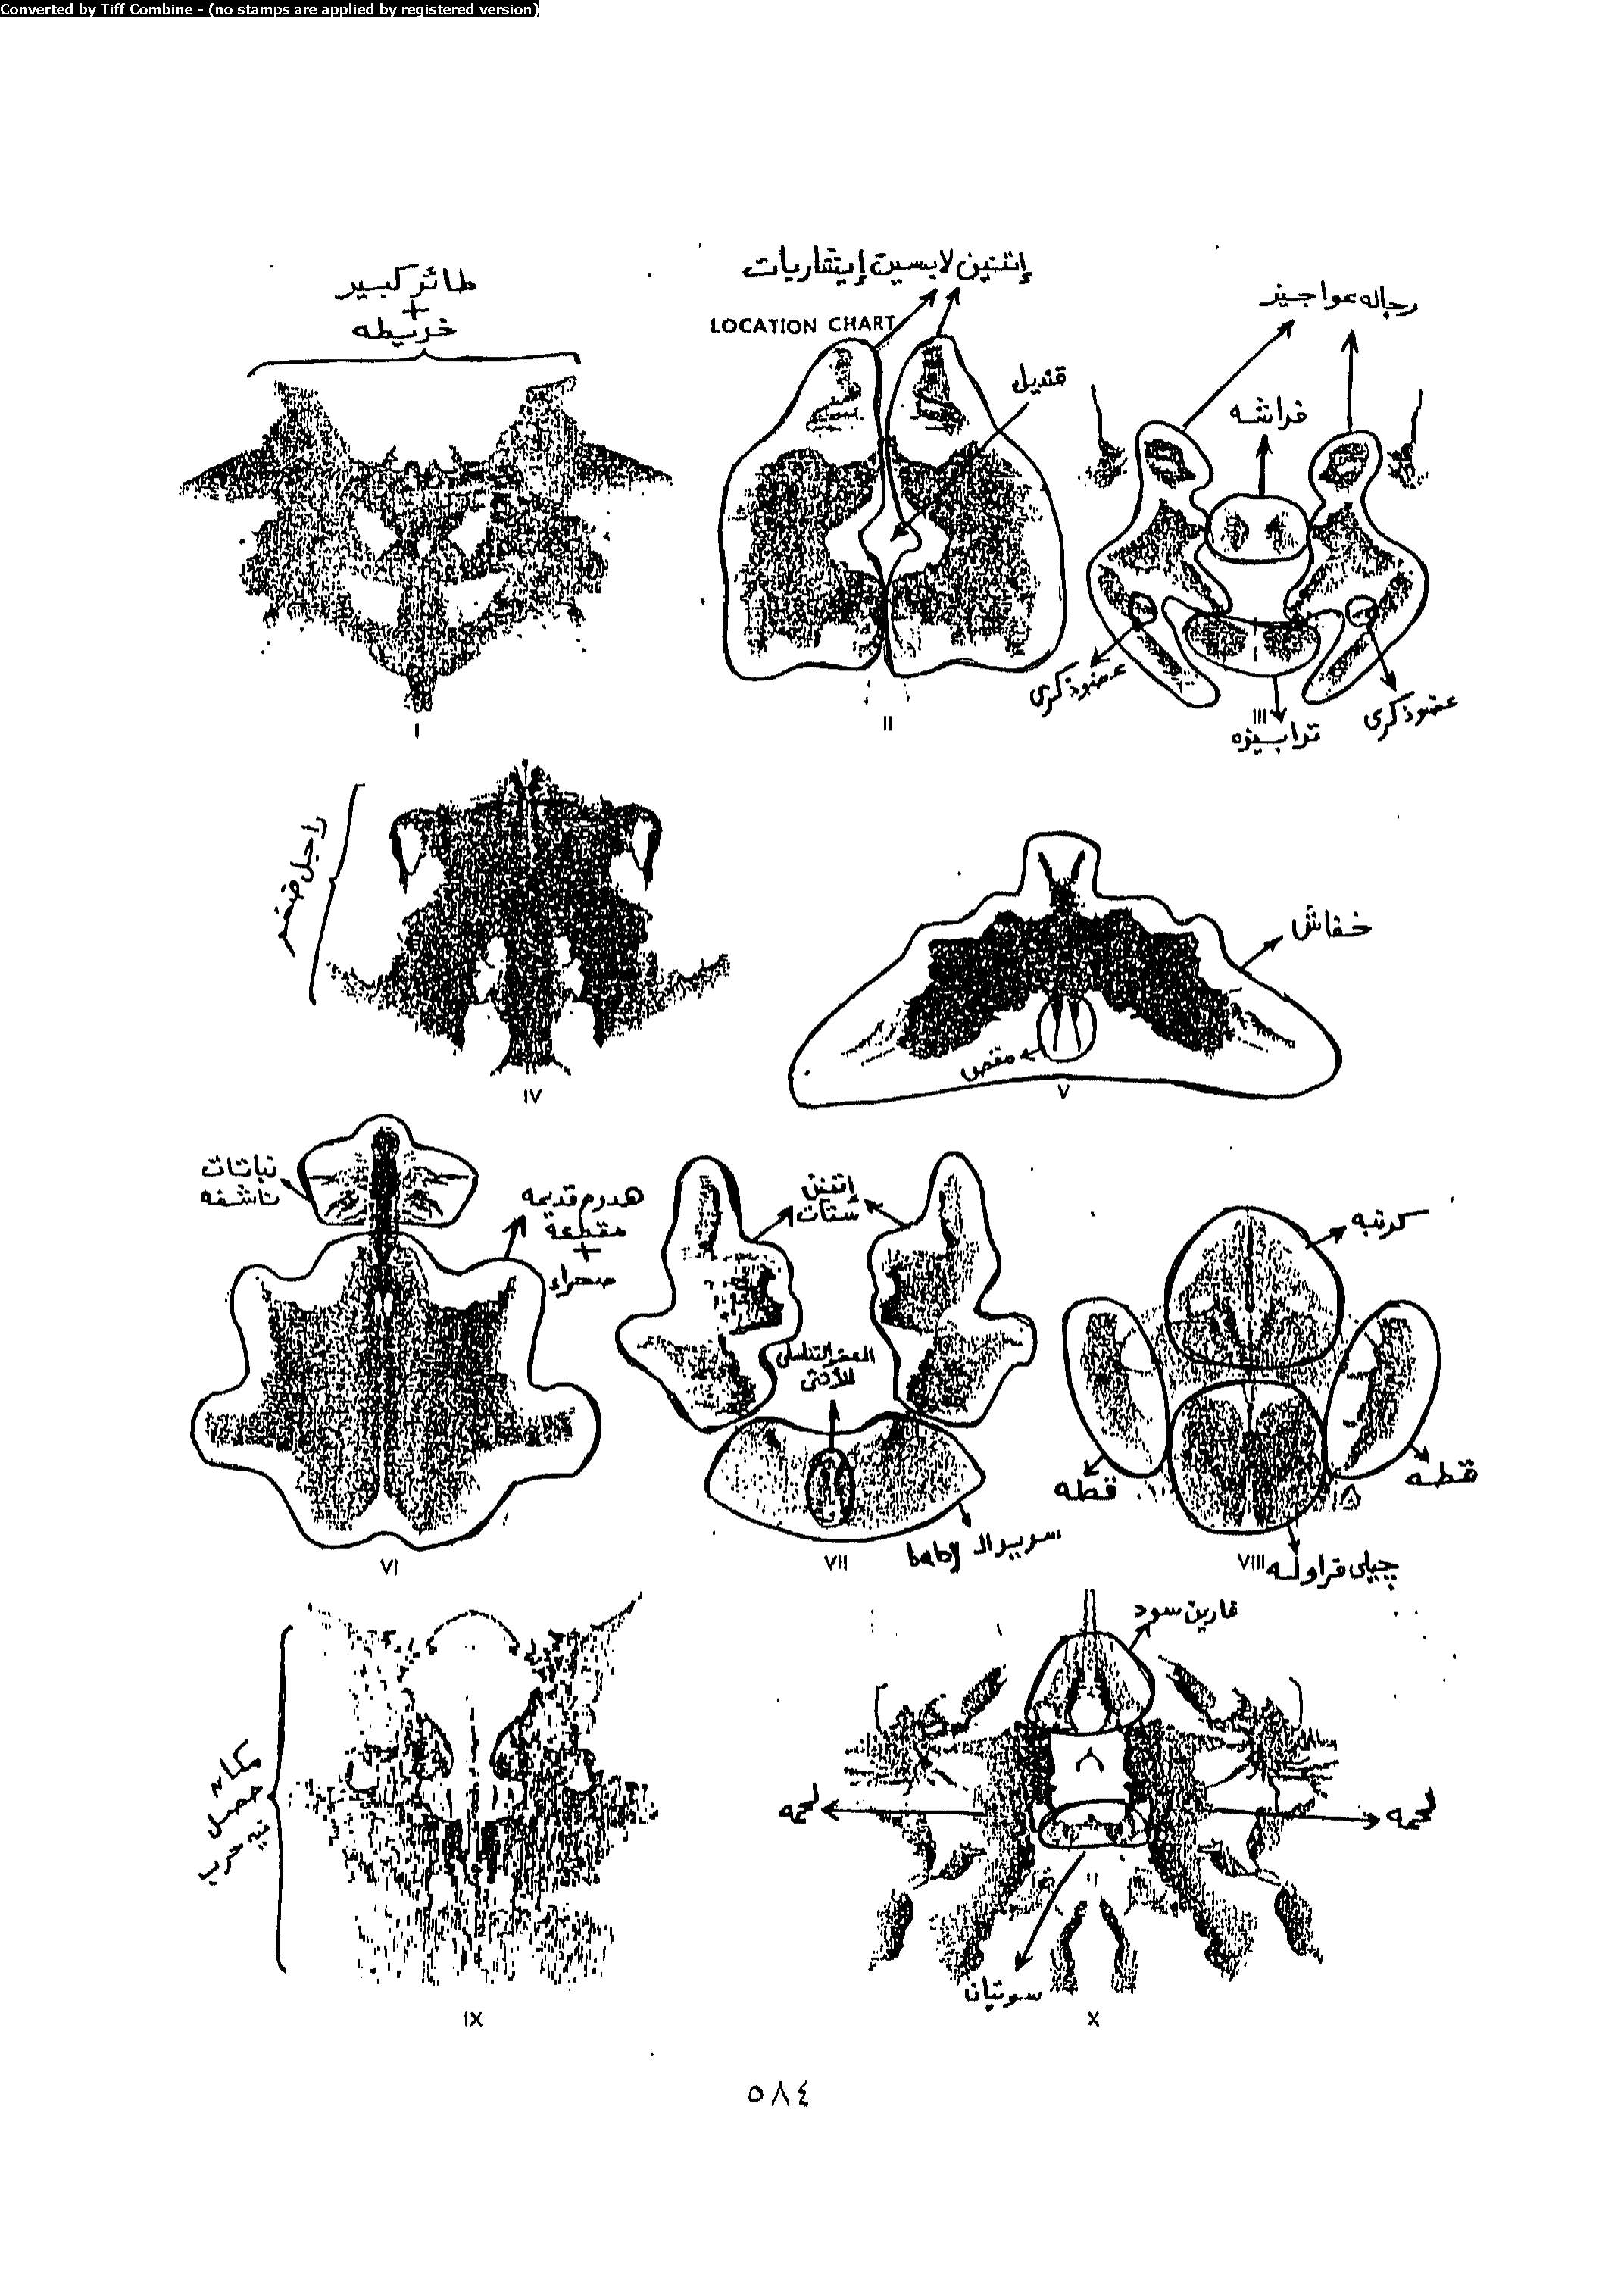 Converted by Tiff Combine - (no stamps are applied by registered version)
طائر كبير
+
خريطه
I
إتنين لابسين إيشاربات
LOCATION CHART
قنديل
II
رجاله عواجيز
فراشه
عضو ذكرى
عضو ذكرى
III
ترابيزه
راجل ضخم
IV
خفاش
مقص
V
نباتات
ناشفه
هدوم قديمه
مقطعة
+
صحراء
VI
إتنين
ستات
العضو التناسلى
للأنثى
سرير الـ baby
VII
كرنبه
قطه
قطه
VIII
چيلى فراوله
مكان
حصل
فيه حرب
IX
فارين سود
لحمه
لحمه
سوتيان
X
٥٨٤